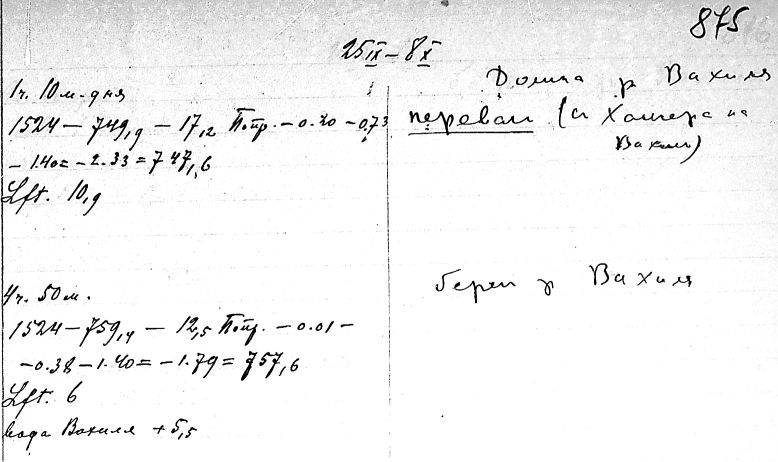 875
25 IX – 8 X
1ч. 10 м. дня
1524 – 749,9 – 17,2 Попр. – 0.20 – 0.73
– 1.40 = – 2.33 = 747,6
Lft. 10,9
Долина р Вахиля
перевал (с Халигера на
Вахил)
4ч. 50 м.
1524 – 759,4 – 12,5 Попр. – 0.01 –
– 0.38 – 1.40 = – 1.79 = 757,6
Lft. 6
вода Вахиля + 5,5
берег р Вахиля